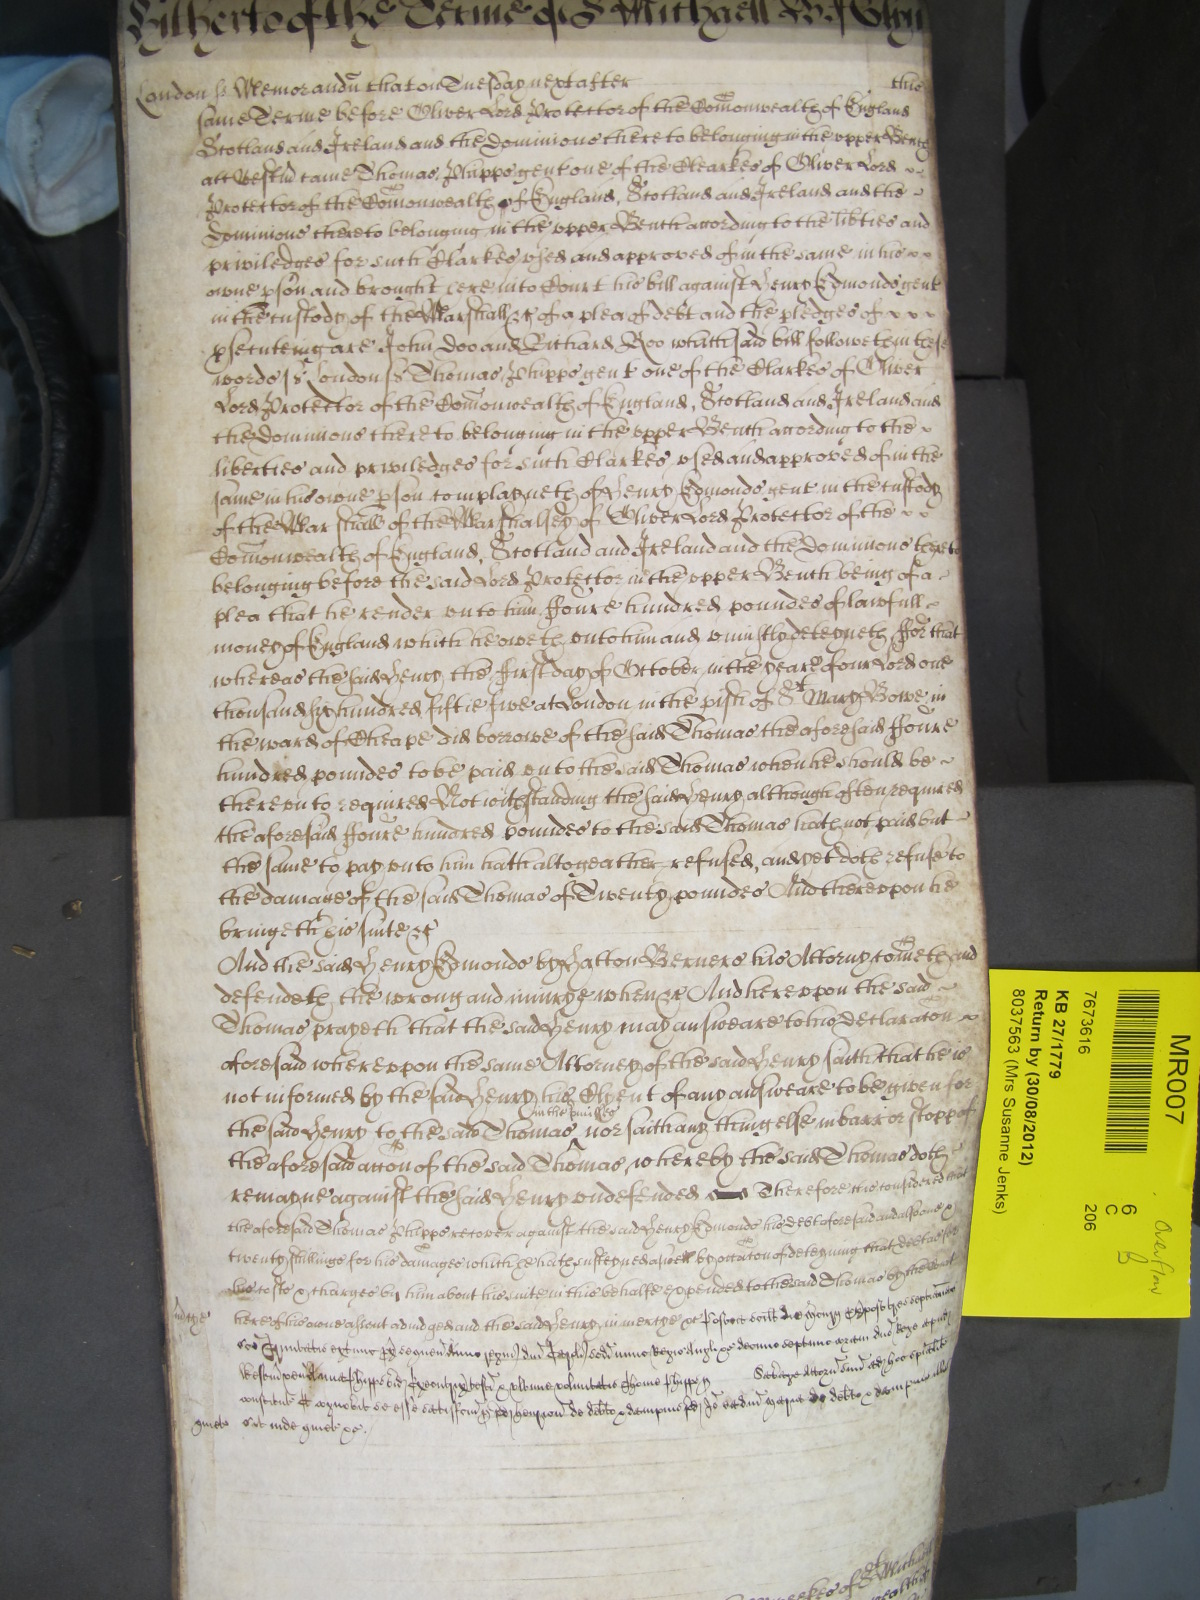 Hitherto of the Terme of St Michaell
London ss Memorandu that on Tuesday next after this
same Terme before Oliver Lord Protector of the Comonwealth of England
Scotland and Ireland and the Dominions there to belonging in the upper Bench
att Westm came Thomas Phipps gent one of the Clearkes of Oliver Lord
Protector of the Comonwealth of England, Scotland and Ireland and the
Dominions thereto belonging in the upper Bench acording to the libties and
priviledges for such Clarkes used and approved of in the same in his
owne pson and brought here into Court his bill against Henry Edmonds gent
in the custody of the Marshall &c of a plea of debt and the pledges of
psecuteing are John Doo and Richard Roo which said bill followeth in these
words ss London ss Thomas Phipps gent one of the Clarkes of Oliver
Lord Protector of the Comonwealth of England, Scotland and Ireland and
the Dominions there to belonging in the upper Bench acording to the
liberties and priviledges for such Clarkes used and approved of in the
same in his owne pson complayneth of Henry Edmonds gent in the custody
of the Marshall of the Marshalsey of Oliver Lord Protector of the
Comonwealth of England, Scotland and Ireland and the Dominions thereto
belonging before the said Lord Protector in the upper Bench being of a
plea that he render unto him ffoure hundred poundes of lawfull
money of England which he oweth unto him and uniustly deteyneth ffor that
whereas the said Henry the first day of October in the yeare of our Lord one
thousand six hundred fiftie five at London in the pish of St Mary Bowe in
the ward of Cheape did borrowe of the said Thomas the aforesaid ffoure
hundred poundes to be paid unto the said Thomas when he should be
thereunto required Notwithstanding the said Henry although often required
the aforesaid ffoure hundred poundes to the said Thomas hath not paid but
the same to pay unto him hath altogeather refused, and yet doth refuse to
the damage of the said Thomas of Twenty poundes And thereupon he
bringeth his suite &c
And the said Henry Edmonds by Hatton Berners his Attorny cometh and
defendeth the wrong and iniurye when &c And hereupon the said
Thomas prayeth that the said Henry may answeare to his declaraton
aforesaid whereupon the same Attorney of the said Henry saith that he is
not informed by the said Henry his Clyent of any answeare to be given for
the said Henry to the said Thomas in the pmisses nor saith any thing else in barr or stopp of
the aforesaid accon of the said Thomas, whereby the said Thomas doth
remayne against the said Henry undefended Therefore it is considered that
the aforesaid Thomas Phipps recover against the said Henry Edmonds his debt aforesaid and alsoe
twenty shillings for his damages which he hath susteyned aswell by occaton of deteyning that debt as for
his costs & charges by him about his suite in this behalfe expended to the said Thomas by the Court
here of his owne assent adiudged and the said Henry in mercye &c
Iudgt
MR007
7673616
KB 27/1779
Return by (30/08/2012)
8037563 (Mrs Susanne Jenks)
6
C
206